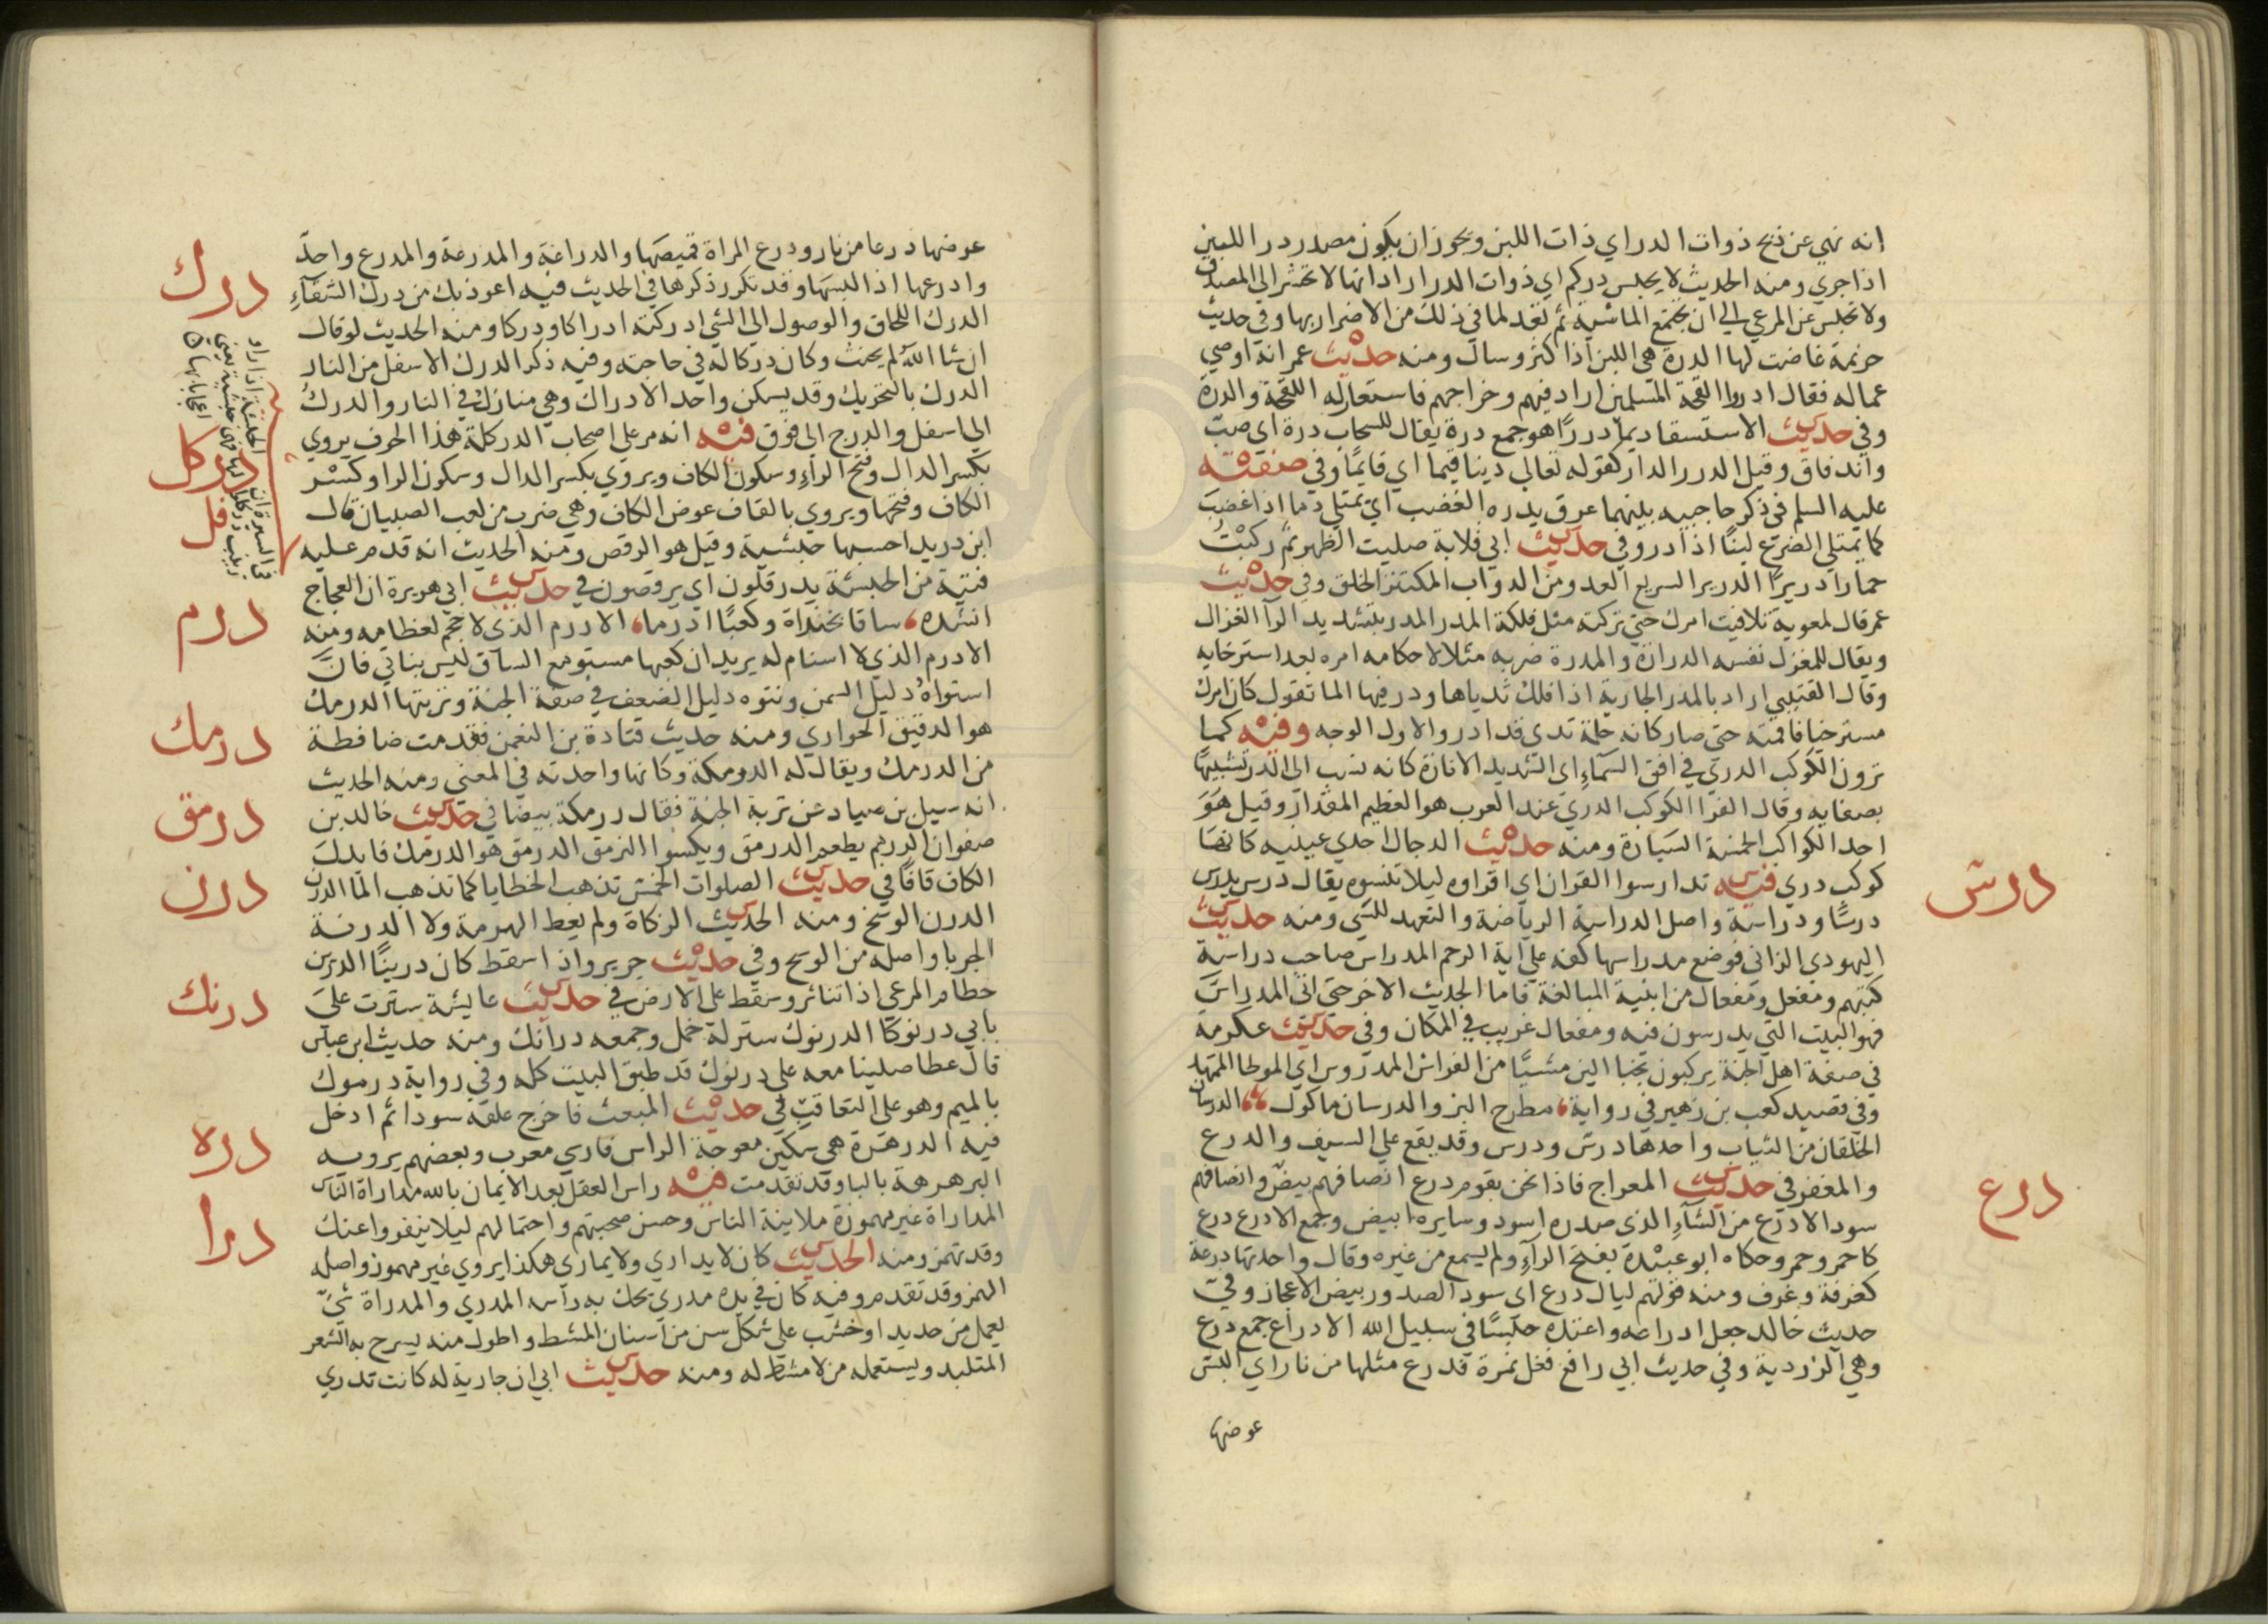 انه نهي عن ذبح ذوات الدر اي ذات اللبن ويجوز ان يكون مصدر در اللبن
اذا جري ومنه الحديث لا يحبس دركم اي ذوات الدر اراد انها لا تحشر الى المصدق
ولا تحبس عن المرعي الي ان تجتمع الماشية ثم تعد لما في ذلك من الاضرار بها وفي حديث
خزيمة غاضت لها الدرة هي اللبن اذا كثر وسال ومنه حديث عمر انه اوصي
عماله فقال ادروا لقحة المسلمين اراد فيهم وخراجهم فاستعار له اللقحة والدرة
وفي حديث الاستسقا ديما دررا هو جمع درة يقال للسحاب درة اي صب
واندفاق وقيل الدرر الدار كقوله تعالي دينا قيما اي قايما وفي صفته
عليه السلم في ذكر حاجبيه بينهما عرق يدره الغضب اي يمتلي دما اذا غضب
كما يمتلي الضرع لبنا اذا در وفي حديث ابي قلابة صليت الظهر ثم ركبت
حمارا دريرا الدرير السريع العدو من الدواب المكتنز الخلق وفي حديث
عمر قال لمعوية تلافيت امرك حتي تركته مثل فلكة المدر المدر بتشديد الرآ الغزال
ويقال للمغزل نفسه الدرارة والمدرة ضربه مثلا لاحكامه امره بعد استرخايه
وقال القتيبي اراد بالمدر الجارية اذا فلك ثدياها ودر فيها الما تقول كان امرك
مسترخيا فاقمته حتي صار كانه حلمة ثدي قد ادر والاول الوجه وفيه كما
ترون الكوكب الدري في افق السمآء اي الشديد الانارة كانه نسب الى الدر تشبيها
بصفايه وقال الفرا الكوكب الدري عند العرب هو العظيم المقدار وقيل هو
احد الكواكب الخمسة السيارة ومنه حديث الدجال احدي عينيه كانها
كوكب دري فيه تدارسوا القران اي اقراوه ليلا تنسوه يقال درس يدرس
درس
درسا ودراسة واصل الدراسة الرياضة والتعهد للشي ومنه حديث
اليهودي الزاني فوضع مدراسها كفه علي اية الرجم المدراس صاحب دراسة
كتبهم ومفعل ومفعال من ابنية المبالغة فاما الحديث الاخر حتي اتى المدراس
فهو البيت التي يدرسون فيه ومفعال غريب في المكان وفي حديث عكرمة
في صفة اهل الجنة يركبون نجبا الين مشيا من الفراش المدروس اي الموطا الممهد
وفي قصيد كعب بن زهير في رواية، مطرح البز والدرسان ماكول، الدرسان
الخلقان من الثياب واحدها درس ودرس وقد يقع علي السيف والدرع
والمغفر في حديث المعراج فاذا نحن بقوم درع انصافهم بيض وانصافهم
درع
سود الادرع من الشآء الذي صدره اسود وسايره ابيض وجمع الادرع درع
كاحمر وحمر وحكاه ابو عبيدة بفتح الرآء ولم يسمع من غيره وقال واحدتها درعة
كغرفة وغرف ومنه قولهم ليال درع اي سود الصدور بيض الاعجاز وفي
حديث خالد جعل ادراعه واعتده حبسا في سبيل الله الادراع جمع درع
وهي الزردية وفي حديث ابي رافع فغل نمرة فدرع مثلها من نار اي البس
عوضها
عوضها درعا من نار ودرع المراة قميصها والدراعة والمدرعة والمدرع واحد
وادرعها اذا لبسها وقد تكرر ذكرها في الحديث فيه اعوذ بك من درك الشقآء
درك
الدرك اللحاق والوصول الي الشي ادركته ادراكا ودركا ومنه الحديث لو قال
ان شا الله لم يحنث وكان دركا له في حاجته وفيه ذكر الدرك الاسفل من النار
الدرك بالتحريك وقد يسكن واحد الادراك وهي منازل في النار والدرك
الى اسفل والدرج الى فوق فيه انه مر علي اصحاب الدركلة هذا الحرف يروي
دركل
بكسر الدال وفتح الرآء وسكون الكاف ويروي بكسر الدال وسكون الرا وكسر
الكاف وفتحها ويروي بالقاف عوض الكاف وهي ضرب من لعب الصبيان قال
ابن دريد احسبها حبشية وقيل هو الرقص ومنه الحديث انه قدم عليه
فتية من الحبشة يدرقلون اي يرقصون في حديث ابي هريرة ان العجاج
درم
انشده، ساقا بخنداة وكعبا ادرما، الادرم الذي لا حجم لعظامه ومنه
الادرم الذي لا اسنام له يريد ان كعبها مستو مع الساق ليس بناتي فان
استواه دليل السمن ونتوه دليل الضعف في صفة الجنة وتربتها الدرمك
درمك
هو الدقيق الحواري ومنه حديث قتادة بن النعمن فقدمت ضافطة
من الدرمك ويقال له الدرمكة وكانها واحدته في المعني ومنه الحديث
انه سيل بن صياد عن تربة الجنة فقال درمكة بيضا في حديث خالد بن
درمق
صفوان الدرهم يطعم الدرمق ويكسوا النرمق الدرمق هو الدرمك فابدل
الكاف قافا في حديث الصلوات الخمس تذهب الخطايا كما تذهب الما الدرن
درن
الدرن الوسخ ومنه الحديث الزكاة ولم يعط الهرمة ولا الدرنة
الجربا واصله من الوسخ وفي حديث جرير واذا سقط كان درينا الدرين
حطام المرعي اذا تناثر وسقط على الارض في حديث عايشة سترت علي
درنك
بابي درنوكا الدرنوك ستر له خمل وجمعه درانك ومنه حديث ابن عباس
قال عطا صلينا معه علي درنوك قد طبق البيت كله وفي رواية درموك
بالميم وهو علي التعاقب في حديث المبعث فاخرج علقة سودا ثم ادخل
دره
فيه الدرهرة هي سكين معوجة الراس فارسي معرب وبعضهم يرويه
البرهرهة بالبا وقد تقدمت فيه راس العقل بعد الايمان بالله مداراة الناس
درا
المداراة غير مهموزة ملاينة الناس وحسن صحبتهم واحتمالهم ليلا ينفروا عنك
وقد تهمز ومنه الحديث كان لا يداري ولا يماري هكذا يروي غير مهموز واصله
الهمز وقد تقدم وفيه كان في يده مدري يحك به راسه المدري والمدراة شي
يعمل من حديد او خشب علي شكل سن من اسنان المشط واطول منه يسرح به الشعر
المتلبد ويستعمله من لا مشط له ومنه حديث ابي ان جارية له كانت تدري